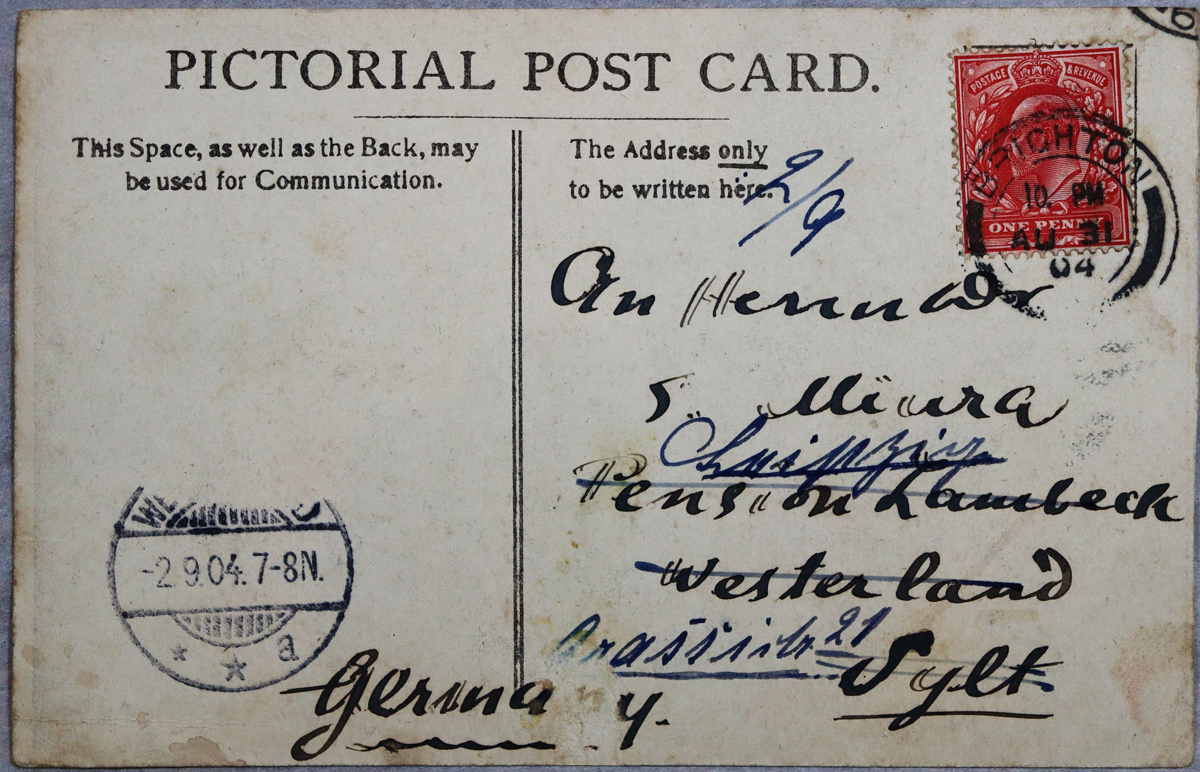 PICTORIAL POST CARD.
This Space, as well as the Back, may
be used for Communication.
The Address only
to be written here.
2/9
POSTAGE & REVENUE
ONE PENNY
10. PM
AU 31
04
An Herrn Dr
S. Miura
Leipzig
Pension Lambeck
Westerland
Grassistr. 21
Sylt
Germany.
-2.9.04. 7-8N.
* * a